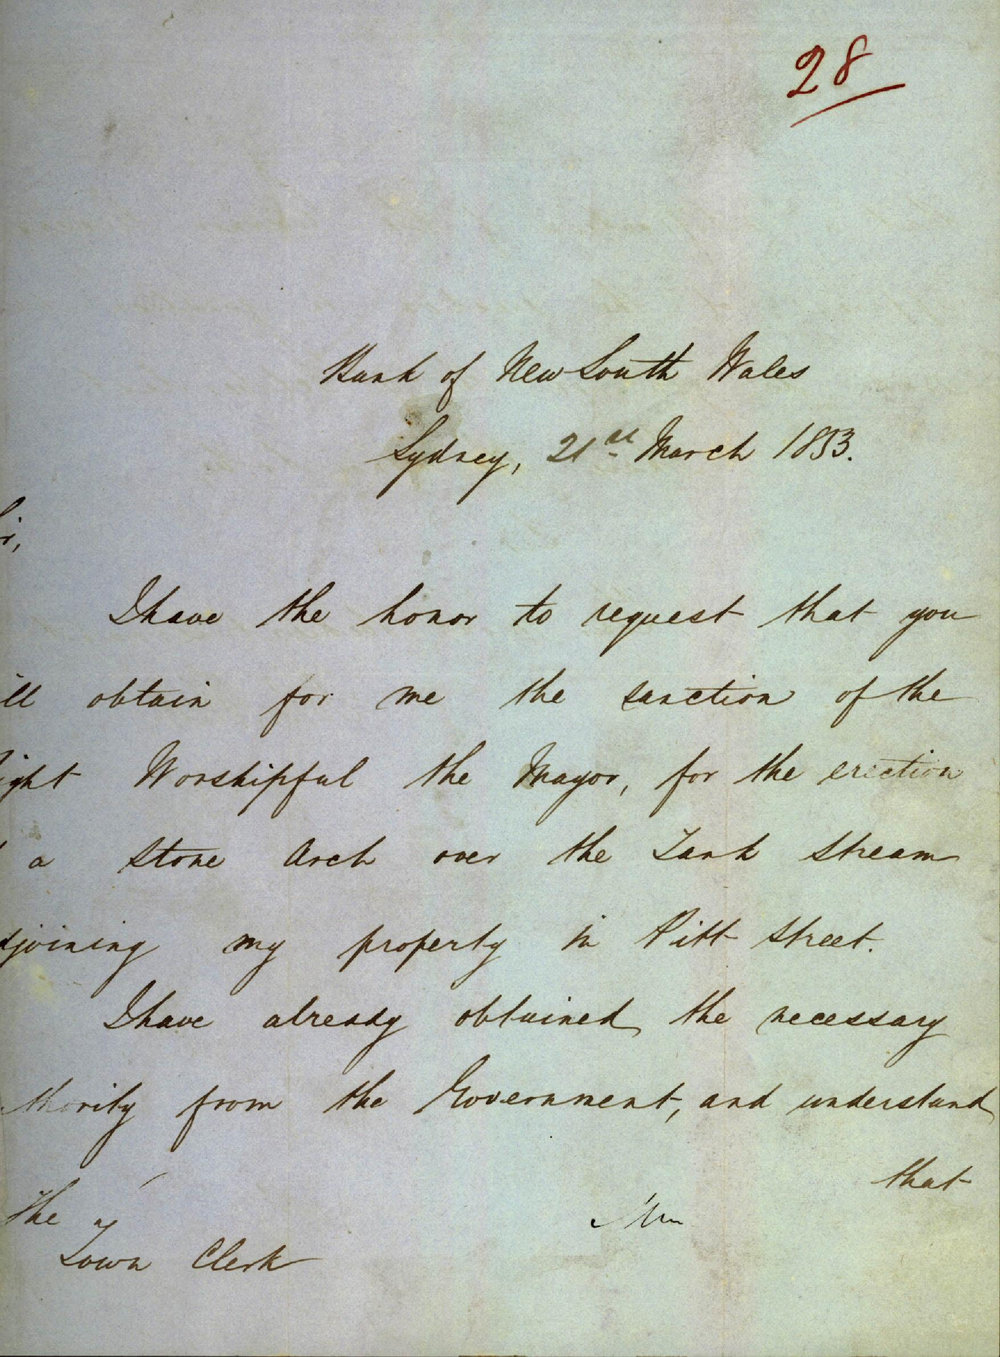 28
Bank of New South Wales
Sydney, 21st March 1853.
ir,
I have the honor to request that you
ill obtain for me the sanction of the
ight Worshipful the Mayor, for the erection
a stone Arch over the Tank Stream
djoining my property in Pitt Street.
I have already obtained the necessary
thority from the Government, and understand
that
The
Town Clerk